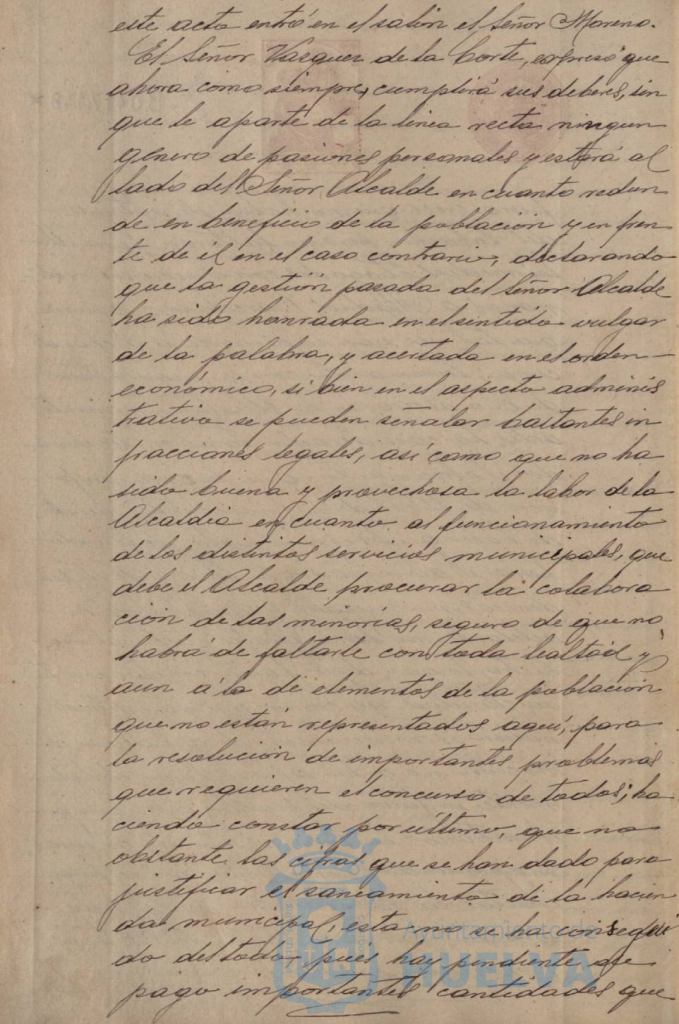 este acto entró en el salón el Señor Moreno.
El Señor Vazquez de la Corte, expresó que
ahora como siempre, cumplirá sus deberes, sin
que le aparte de la linea recta ningun
genero de pasiones personales y estará al
lado del Señor Alcalde en cuanto redun
de en beneficio de la población y en fren
te de él en el caso contrario, declarando
que la gestión pasada del Señor Alcalde
ha sido honrada en el sentido vulgar
de la palabra, y acertada en el orden
económico, si bien en el aspecto adminis
trativo se pueden señalar bastantes in
fracciones legales, asi como que no ha
sido buena y provechosa la labor de la
Alcaldia en cuanto al funcionamiento
de los distintos servicios municipales, que
debe el Alcalde procurar la colabora
ción de las minorias, seguro de que no
habrá de faltarle con toda lealtad y
aun á la de elementos de la población
que no están representados aquí, para
la resolución de importantes problemas
que requieren el concurso de todos; ha
ciendo constar por último, que no
obstante las cifras que se han dado para
justificar el saneamiento de la hacien
da municipal, esta no se ha consegui
do del todo pues hay pendiente de
pago importantes cantidades que
Ayuntamiento de
HUELVA